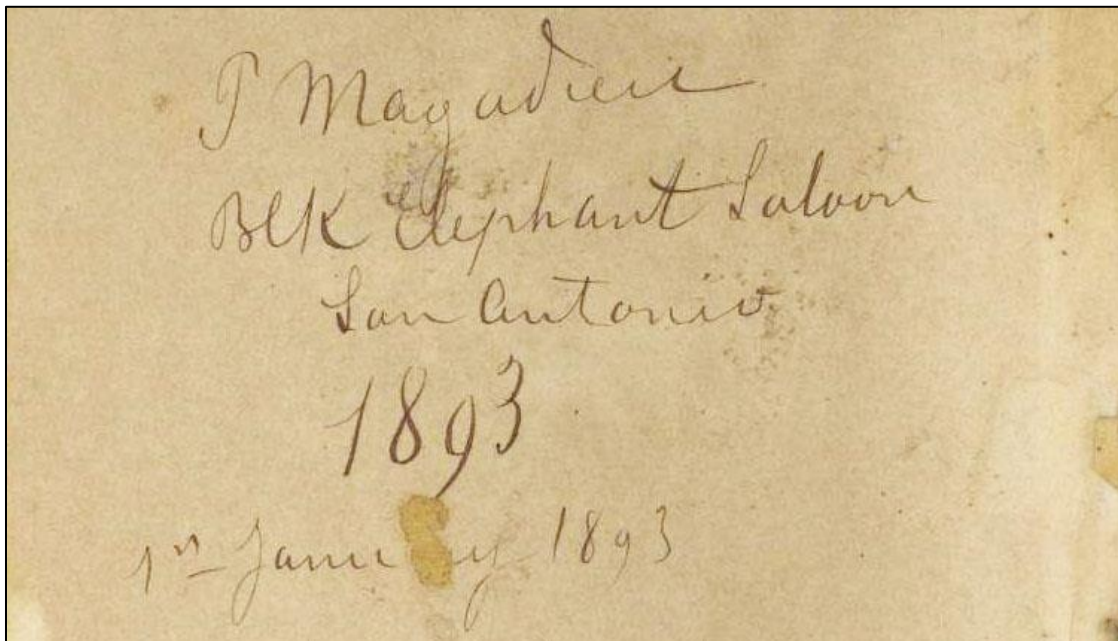 P Magadieu
Blk Elephant Saloon
San Antonio
1893
1st January 1893